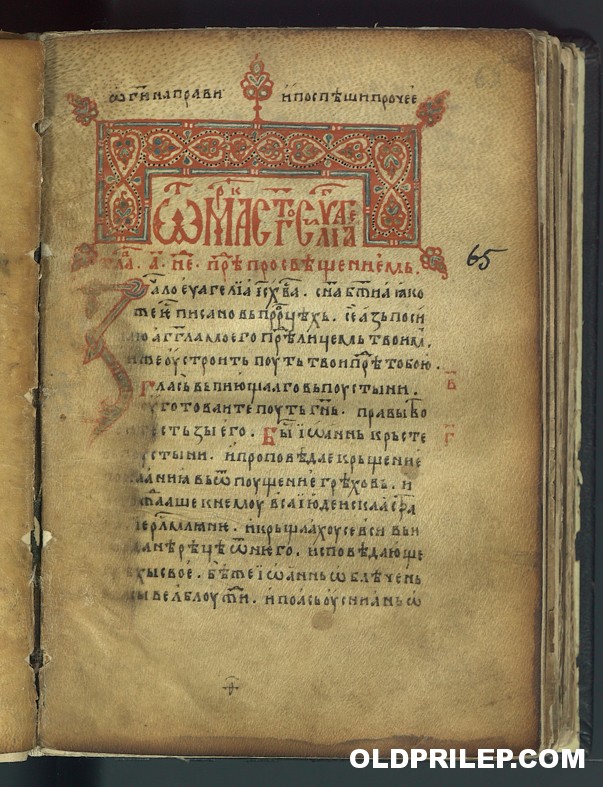 ѡ гн҃ направи и поспѣши прочее
Ѿ МАⷬ҇Кⷶ СТ҃ОЕ ЕУАГЕ
ЛIА
гла҃ . а҃ . не҃ . прⷣѣ просвѣщениемь .
Зачало еуагелїа їсхв҃а . сн҃а бж҃їа ꙗко
же ѥⷭ҇ писано вь прⷪ҇роцѣхь . се азь поси
лю агг҃ла моего прѣⷣ лицемь твоимь .
иже оустроить поуть твои прѣⷣ тобою .
Глась вьпиющаго вь поустыни .
оуготоваите поуть гн҃ь . правы
стьзы его . Бы҇ їѡаннь крьсте
поустыни . и проповѣдае крьщение
покаания вь ѿпоущение грѣховь . и
исхождаше к немоу вса їюдеиска стра
їерⷭ҇лмлꙗне . и крьщаахоу се вси вь и
рⷣѣ рѣце ѿ него . исповѣдающе
грѣхы свое . бѣ же їѡаннь ѡблѣчень
вельблоужи . и поꙗсь оуснианнь ѡ
в҃
г҃
65
OLDPRILEP.COM